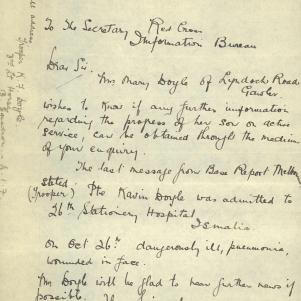 To The Secretary Red Cross
Information Bureau
Dear Sir.
Mrs Mary Doyle of Lyndoch Road
Gawler
wishes to know if any further information
regarding the progress of her son on active
service, can be obtained through the medium
of your enquiry.
The last message from Base Report Melbn
stated
(Trooper) Pte Kavin Doyle was admitted to
26th Stationery Hospital
Ismalia
on Oct 26th dangerously ill, pneumonia,
wounded in face.
Mrs Doyle will be glad to hear further news if
possible.
address
Trooper K F Doyle
3rd Lt Horse